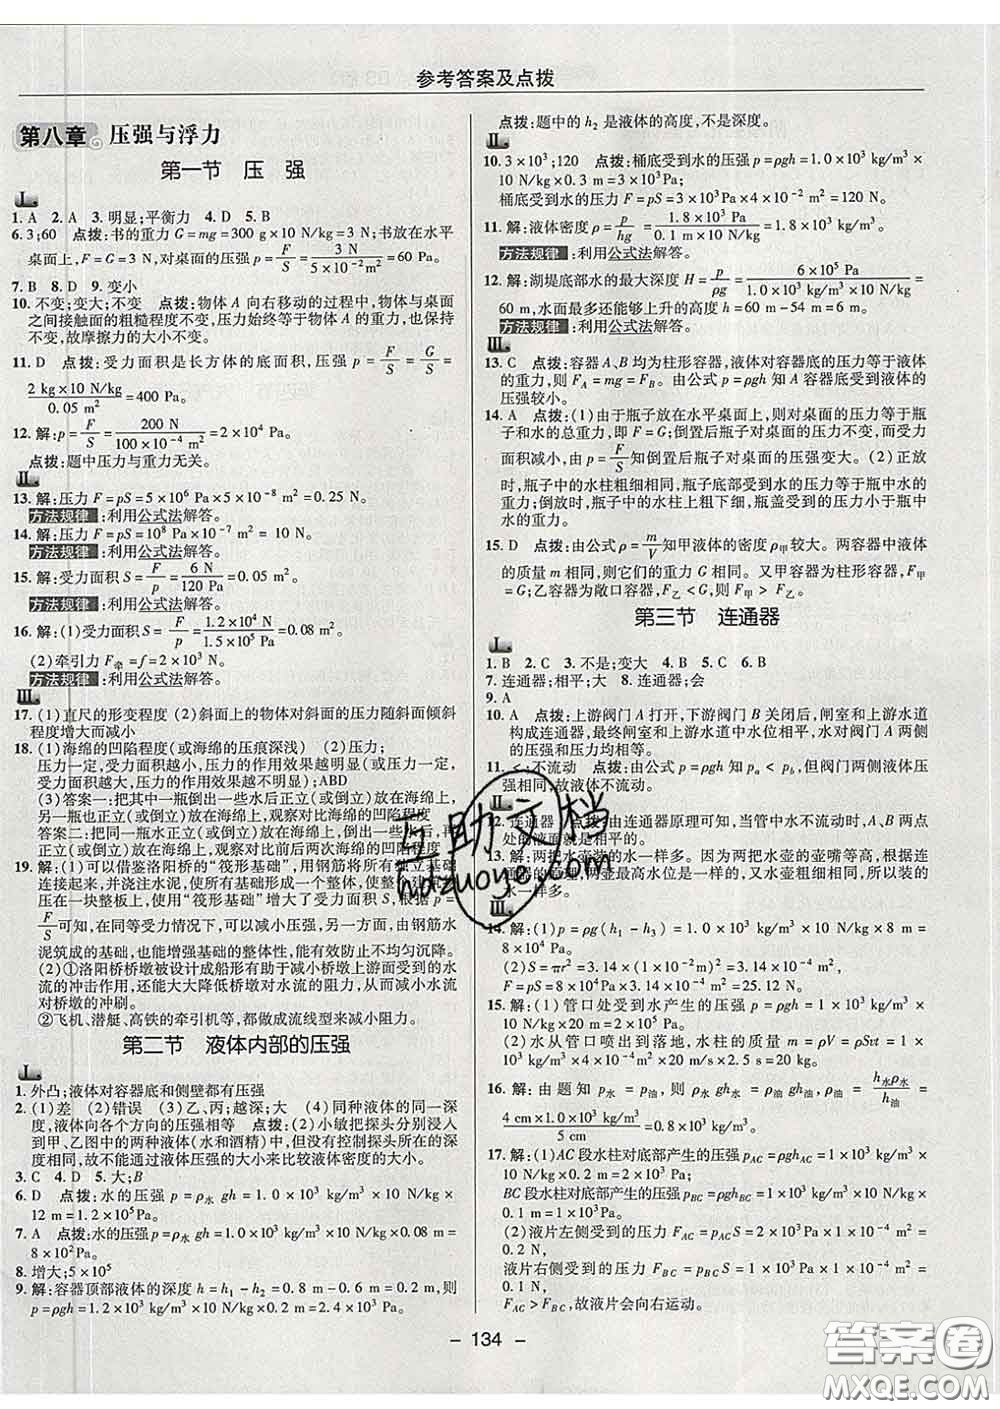 参考答案及点拨
第八章 压强与浮力
第一节 压 强
Ⅰ
1. A 2. A 3. 明显;平衡力 4. D 5. B
6. 3;60 点拨:书的重力 G=mg=300 g×10 N/kg=3 N;书放在水平
桌面上,F=G=3 N,对桌面的压强 p=F/S=3 N/(5×10⁻² m²)=60 Pa。
7. B 8. D 9. 变小
10. 不变;变大;不变 点拨:物体 A 向右移动的过程中,物体与桌面
之间接触面的粗糙程度不变,压力始终等于物体 A 的重力,也保持
不变,故摩擦力的大小不变。
11. D 点拨:受力面积是长方体的底面积,压强 p=F/S=G/S=
2 kg×10 N/kg/0.05 m²=400 Pa。
12. 解:p=F/S=200 N/(100×10⁻⁴ m²)=2×10⁴ Pa。
点拨:题中压力与重力无关。
Ⅱ
13. 解:压力 F=pS=5×10⁶ Pa×5×10⁻⁸ m²=0.25 N。
方法规律:利用公式法解答。
14. 解:压力 F=pS=10⁸ Pa×10⁻⁷ m²=10 N。
方法规律:利用公式法解答。
15. 解:受力面积 S=F/p=6 N/120 Pa=0.05 m²。
方法规律:利用公式法解答。
16. 解:(1)受力面积 S=F/p=1.2×10⁴ N/(1.5×10⁵ Pa)=0.08 m²。
(2)牵引力 F牵=f=2×10³ N。
方法规律:利用公式法解答。
Ⅲ
17. (1)直尺的形变程度 (2)斜面上的物体对斜面的压力随斜面倾斜
程度增大而减小
18. (1)海绵的凹陷程度(或海绵的压痕深浅) (2)压力;
压力一定,受力面积越小,压力的作用效果越明显(或压力一定,
受力面积越大,压力的作用效果越不明显);ABD
(3)答案一:把其中一瓶倒出一些水后正立(或倒立)放在海绵上,
另一瓶也正立(或倒立)放在海绵上,观察对比海绵的凹陷程度
答案二:把同一瓶正立(或倒立)放在海绵上,倒出一些水后,再
正立(或倒立)放在海绵上,观察对比前后两次海绵的凹陷程度
19. 解:(1)可以借鉴洛阳桥的“筏形基础”,用钢筋将所有独立基础
连接起来,并浇注水泥,使很多独立的基础形成一个整体,使
压在一块整板上,使用“筏形基础”增大了受力面积 S,根据 p=
F/S可知,在同等受力情况下,可以减小压强,另外,由钢筋水
泥筑成的基础,也能增强基础的整体性,能有效防止不均匀沉降。
(2)①洛阳桥桥墩被设计成船形有助于减小桥墩上游面受到的水
流的冲击作用,还能大大降低桥墩对水流的阻力,从而减小水流
对桥墩的冲刷。
②飞机、潜艇、高铁的牵引机等,都做成流线型来减小阻力。
第二节 液体内部的压强
Ⅰ
1. 外凸;液体对容器底和侧壁都有压强
2. (1)差 (2)错误 (3)乙、丙;越深;大 (4)同种液体的同一深
度,液体向各个方向的压强相等 点拨:(2)小敏把探头分别浸入
到甲、乙图中的两种液体(水和酒精)中,但没有控制探头所处深
度相同,故不能通过液体压强的大小来比较液体密度的大小。
3. C 4. D 5. 大;B
6. D 点拨:水的压强 p=ρ水gh=1.0×10³ kg/m³×10 N/kg×
12 m=1.2×10⁵Pa。
7. A 点拨:水的压强 p=ρ水gh=1.0×10³ kg/m³×10 N/kg×0.08 m=
8×10²Pa。
8. 增大;5×10⁵
9. 解:容器顶部液体的深度 h=h₁-h₂=0.8 m-0.6 m=0.2 m,则
p=ρgh=1.2×10³ kg/m³×10 N/kg×0.2 m=2.4×10³ Pa。
点拨:题中的 h₂ 是液体的高度,不是深度。
Ⅱ
10. 3×10³;120 点拨:桶底受到水的压强 p=ρgh=1.0×10³ kg/m³
×10 N/kg×0.3 m=3×10³ Pa;
桶底受到水的压力 F=pS=3×10³ Pa×4×10⁻² m²=120 N。
11. 解:液体密度 ρ=p/hg=1.8×10³ Pa/(0.1 m×10 N/kg)=1.8×10³ kg/m³。
方法规律:利用公式法解答。
12. 解:湖堤底部水的最大深度 H=p/ρg=6×10⁵ Pa/(1.0×10³ kg/m³×10 N/kg)=
60 m,水面最多还能够上升的高度 h=60 m-54 m=6 m。
方法规律:利用公式法解答。
Ⅲ
13. C 点拨:容器 A、B 均为柱形容器,液体对容器底的压力等于液体
的重力,则 F_A=mg=F_B。由公式 p=F/S知 A 容器底受到液体的
压强较小。
14. A 点拨:(1)由于瓶子放在水平桌面上,则对桌面的压力等于瓶
子和水的总重力,即 F=G;倒置后瓶子对桌面的压力不变,而受力
面积减小,由 p=F/S知倒置后瓶子对桌面的压强变大。(2)正放
时,瓶子中的水柱粗细相同,水对瓶底的压力大小等于水的重力
大小;倒放时,瓶子中的水柱上粗下细,瓶盖受到的压力小于瓶中
水的重力。
15. D 点拨:由公式 ρ=m/V知甲液体的密度 ρ甲较大。两容器中液体
的质量 m 相同,则它们的重力 G 相同。又甲容器为柱形容器,F甲
=G;乙容器为敞口容器,F乙<G,故 F甲>F乙。
第三节 连通器
Ⅰ
1. B 2. C 3. 不是;变大 4. B 5. C 6. B
7. 连通器;相平;大 8. 连通器;会
9. A
10. A 点拨:上游阀门 A 打开,下游阀门 B 关闭后,闸室和上游水道
构成连通器,最终闸室和上游水道中水位相平,故水对阀门 A 两侧
的压强和压力均相等。
11. <;不流动 点拨:由公式 p=ρgh知 p_a<p_b,但阀门两侧液体压
强相同,故液体不流动。
Ⅱ
12. 连通器 点拨:由连通器原理可知,当管中水不流动时,A、B 两点
处的液面就是相平的。
13. 解:两把水壶装的水一样多。因为两把水壶的壶嘴等高,根据连
通器的原理,两壶最高水位是一样的,又水壶粗细相同,所以装的
水一样多。
Ⅲ
14. 解:(1)p=ρg(h₁-h₃)=1.0×10³ kg/m³×10 N/kg×8 m=
8×10⁴ Pa。
(2)S=πr²=3.14×(1×10⁻² m)²=3.14×10⁻⁴ m²,
F=pS=8×10⁴Pa×3.14×10⁻⁴ m²=25.12 N。
15. 解:(1)管口处受到水产生的压强 p=ρgh=1×10³ kg/m³×10
N/kg×20 m=2×10⁵ Pa。
(2)水从管口喷出到落地,水柱的质量 m=ρV=ρSvt=1×10³
kg/m³×4×10⁻⁴ m²×20 m/s×2.5 s=20 kg。
16. 解:由题知 p水=p油,则 ρ水gh水=ρ油gh油,ρ油=h水ρ水/h油=
4 cm×1.0×10³ kg/m³/5 cm=0.8×10³ kg/m³。
17. 解:(1)AC 段水柱对底部产生的压强 p_AC=ρgh_AC=1×10³ kg/m³
×10 N/kg×0.2 m=2×10³Pa;
BC 段水柱对底部产生的压强 p_BC=ρgh_BC=1×10³ kg/m³×10
N/kg×0.1 m=1×10³ Pa。
(2)液片左侧受到的压力 F_AC=p_AC S=2×10³Pa×1×10⁻⁴ m²=
0.2 N,
液片右侧受到的压力 F_BC=p_BC S=1×10³ Pa×1×10⁻⁴ m²
=0.1 N,
F_AC>F_BC,故液片会向右运动。
- 134 -
互助文档
huzuoye.com
答案圈
MXQE.COM